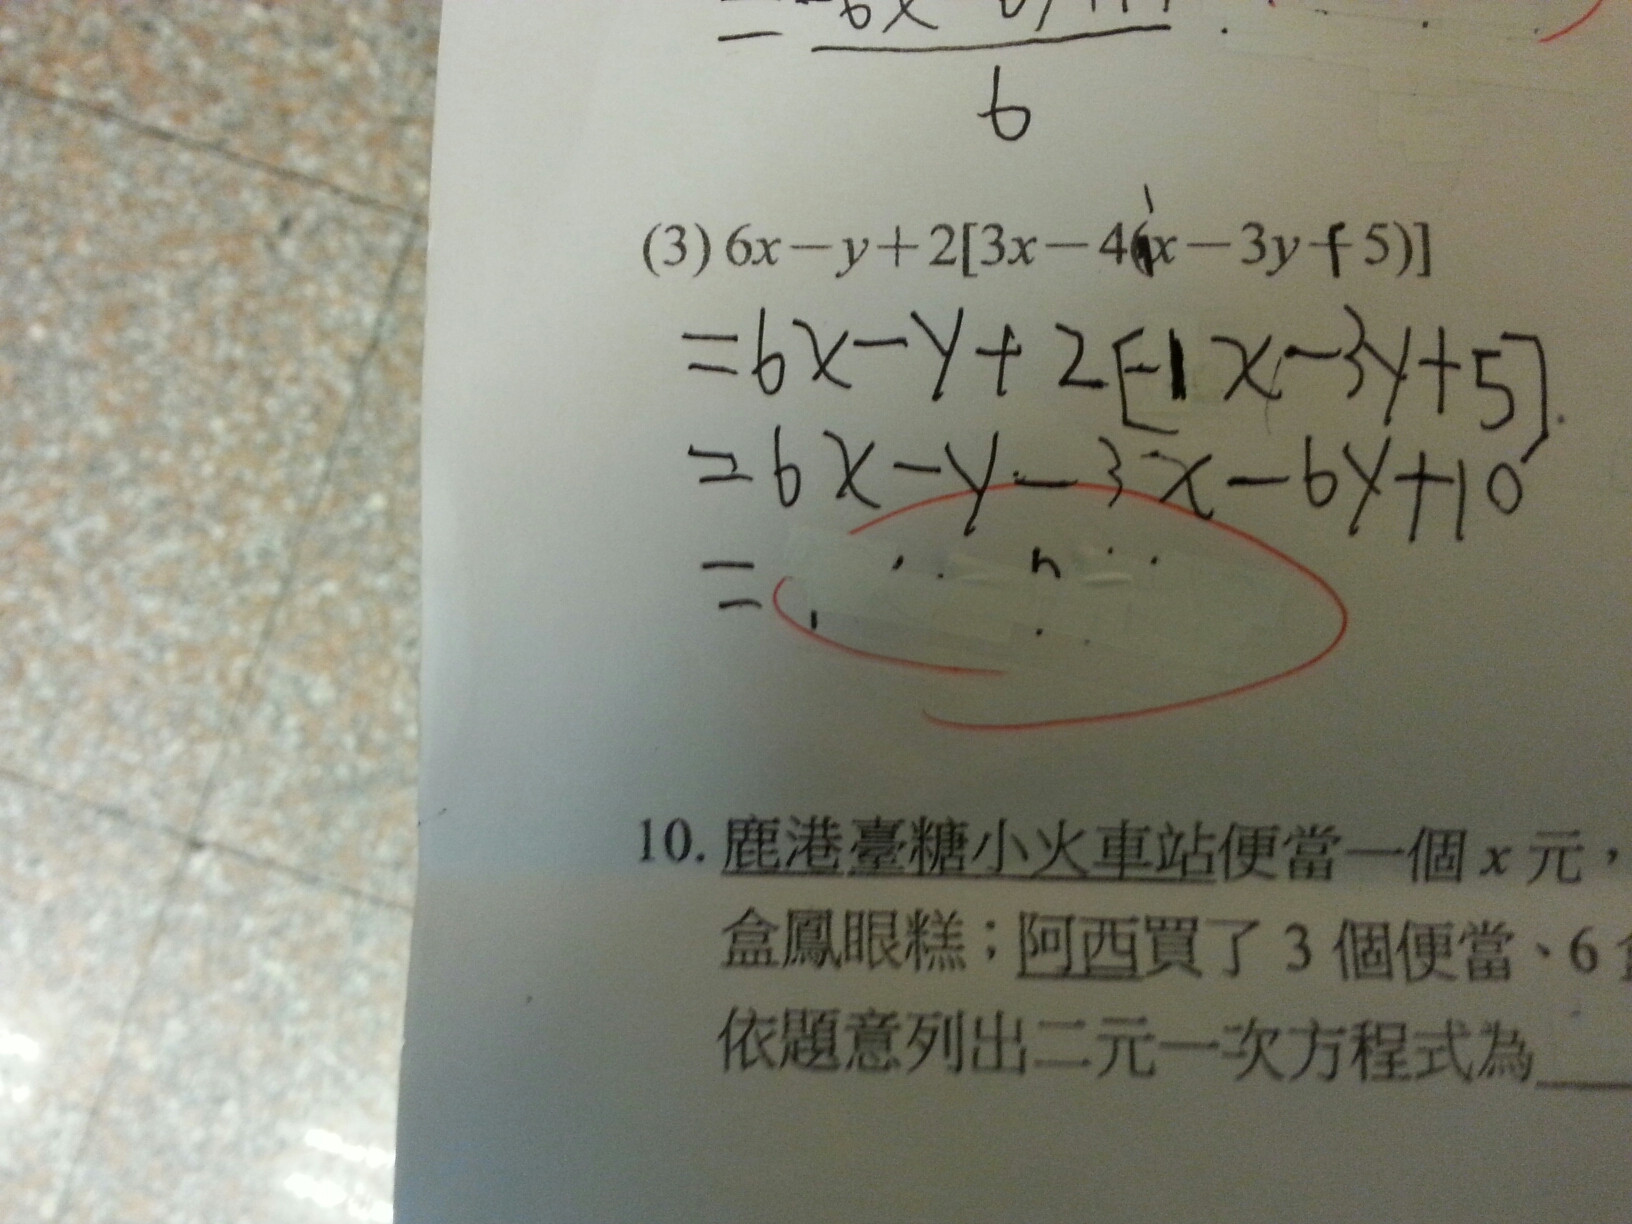 =
6
(3) 6x－y＋2[3x－4(x－3y＋5)]
=6x－y＋2[-1x－3y＋5]
=6x－y－3x－6y＋10
=
10. 鹿港臺糖小火車站便當一個 x 元，
盒鳳眼糕；阿西買了 3 個便當、6
依題意列出二元一次方程式為